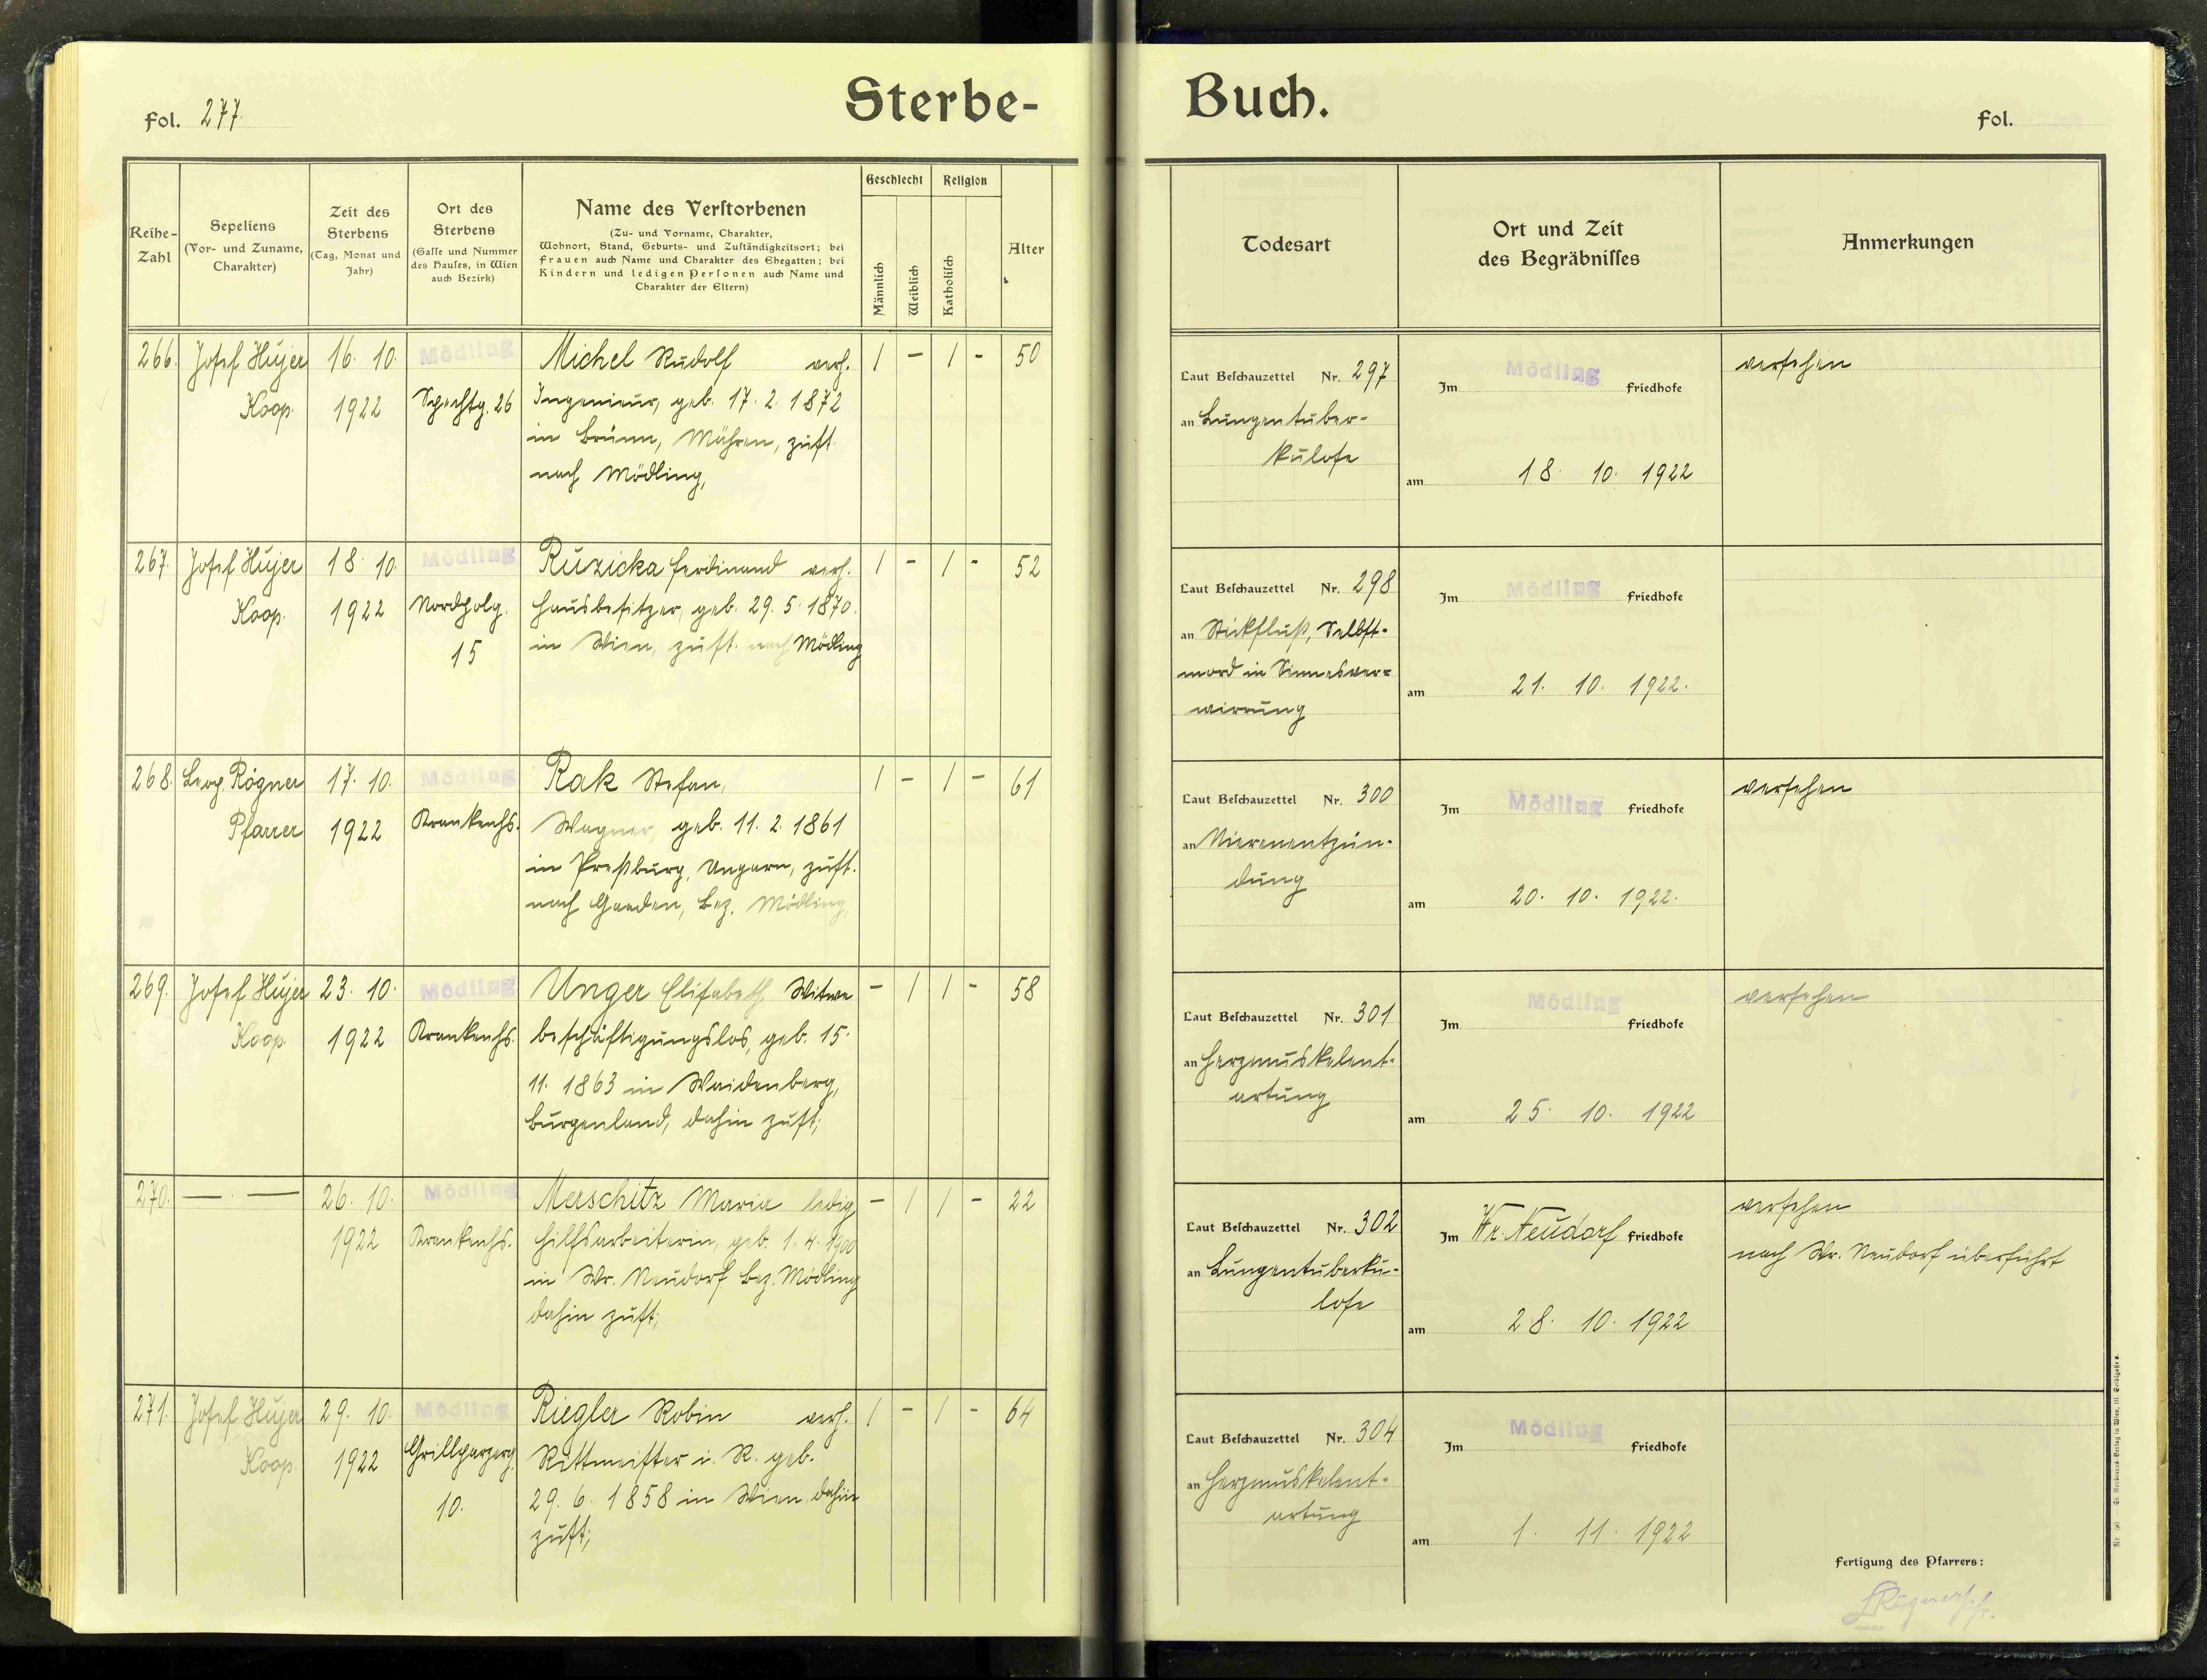 Fol. 277.
Sterbe-
Reihe-
Zahl
Sepeliens
(Vor- und Zuname,
Charakter)
Zeit des
Sterbens
(Tag, Monat und
Jahr)
Ort des
Sterbens
(Gasse und Nummer
des Hauses, in Wien
auch Bezirk)
Name des Verstorbenen
(Zu- und Vorname, Charakter,
Wohnort, Stand, Geburts- und Zuständigkeitsort; bei
Frauen auch Name und Charakter des Ehegatten; bei
Kindern und ledigen Personen auch Name und
Charakter der Eltern)
Geschlecht
Männlich
Weiblich
Religion
Katholisch
Alter
266. Josef Hujer 16. 10. Mödling Michel Rudolf verh. 1 – 1 – 50
Koop. 1922 Spechtg. 26 Ingenieur, geb. 17. 2. 1872
in Brünn, Mähren, zust.
nach Mödling,
267. Josef Hujer 18. 10. Mödling Ruzicka Ferdinand verh. 1 – 1 – 52
Koop. 1922 Hausbesitzer, geb. 29. 5. 1870.
15 in Wien, zust. nach Mödling
268. Leop. Rögner 17. 10. Mödling Rak Stefan, 1 – 1 – 61
Pfarrer 1922 Krankenhs. Wagner, geb. 11. 2. 1861
in Preßburg, Ungarn, zust.
nach Gaaden, Bez. Mödling,
269. Josef Hujer 23. 10. Mödling Unger Elisabeth Witwe – 1 1 – 58
Koop. 1922 Krankenhs. beschäftigungslos, geb. 15.
11. 1863 in Waidenberg,
Burgenland, dahin zust;
270. — — 26. 10. Mödling Merschitz Maria ledig – 1 1 – 22
1922 Krankenhs. Hilfsarbeiterin, geb. 1. 4. 1900
in Wr. Neudorf Bez. Mödling
dahin zust;
271. Josef Hujer 29. 10. Mödling Riegler Robin verh. 1 – 1 – 64
Koop. 1922 Grillparzerg. Rittmeister i. R. geb.
10. 29. 6. 1858 in Wien, dahin
zust;
Buch.
Fol.
Todesart
Ort und Zeit
des Begräbnisses
Anmerkungen
Laut Beschauzettel Nr. 297 Im Mödling Friedhofe versehen
an Lungentuber-
kulose
am 18. 10. 1922
Laut Beschauzettel Nr. 298 Im Mödling Friedhofe
an Stickfluß, Selbst-
mord in Sinnesver-
am 21. 10. 1922.
wirrung
Laut Beschauzettel Nr. 300 Im Mödling Friedhofe versehen
an Nierenentzün-
dung
am 20. 10. 1922.
Laut Beschauzettel Nr. 301 Im Mödling Friedhofe versehen
an Herzmuskelent-
artung
am 25. 10. 1922
Laut Beschauzettel Nr. 302 Im Wr. Neudorf Friedhofe versehen
nach Wr. Neudorf überführt
an Lungentuberku-
lose
am 28. 10. 1922
Laut Beschauzettel Nr. 304 Im Mödling Friedhofe
an Herzmuskelent-
artung
am 1. 11. 1922
Fertigung des Pfarrers: